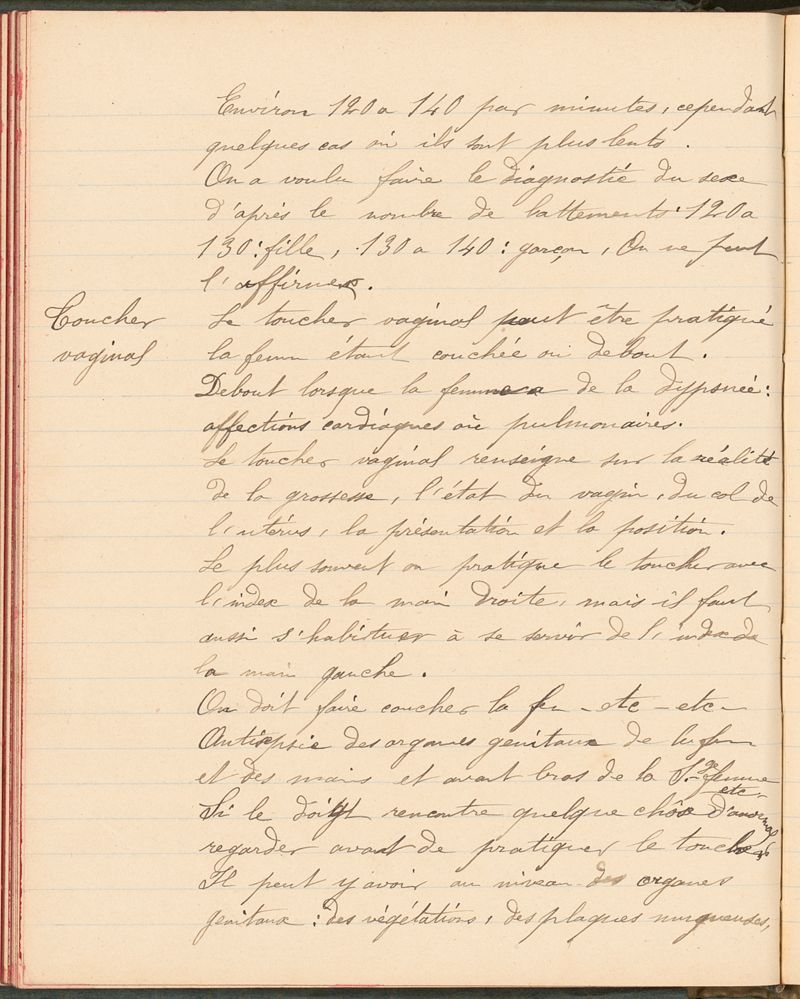 Environ 120 a 140 par minutes, cependant
quelques cas ou ils sont plus lents.
On a voulu faire le diagnostic du sexe
d'après le nombre de battements. 120 a
130 : fille, 130 a 140 : garçon, On ne peut
l'affirmer.
Toucher
vaginal
Le toucher vaginal peut être pratiqué
la femm étant couchée ou debout.
Debout lorsque la femme a de la dypsnée :
affections cardiaques ou pulmonaires.
Le toucher vaginal renseigne sur la réalité
de la grossesse, l'état du vagin, du col de
l'utérus, la présentation et la position.
Le plus souvent on pratique le toucher avec
l'index de la main droite, mais il faut
aussi s'habituer à se servir de l'index de
la main gauche.
On doit faire coucher la fm - etc - etc -
Antisepsie des organes genitaux de la fm
et des mains et avant bras de la S. femme
etc -
Si le doigt rencontre quelque chose d'anormal
regarder avant de pratiquer le toucher
Il peut y avoir au niveau des organes
genitaux : des végétations, des plaques muqueuses,